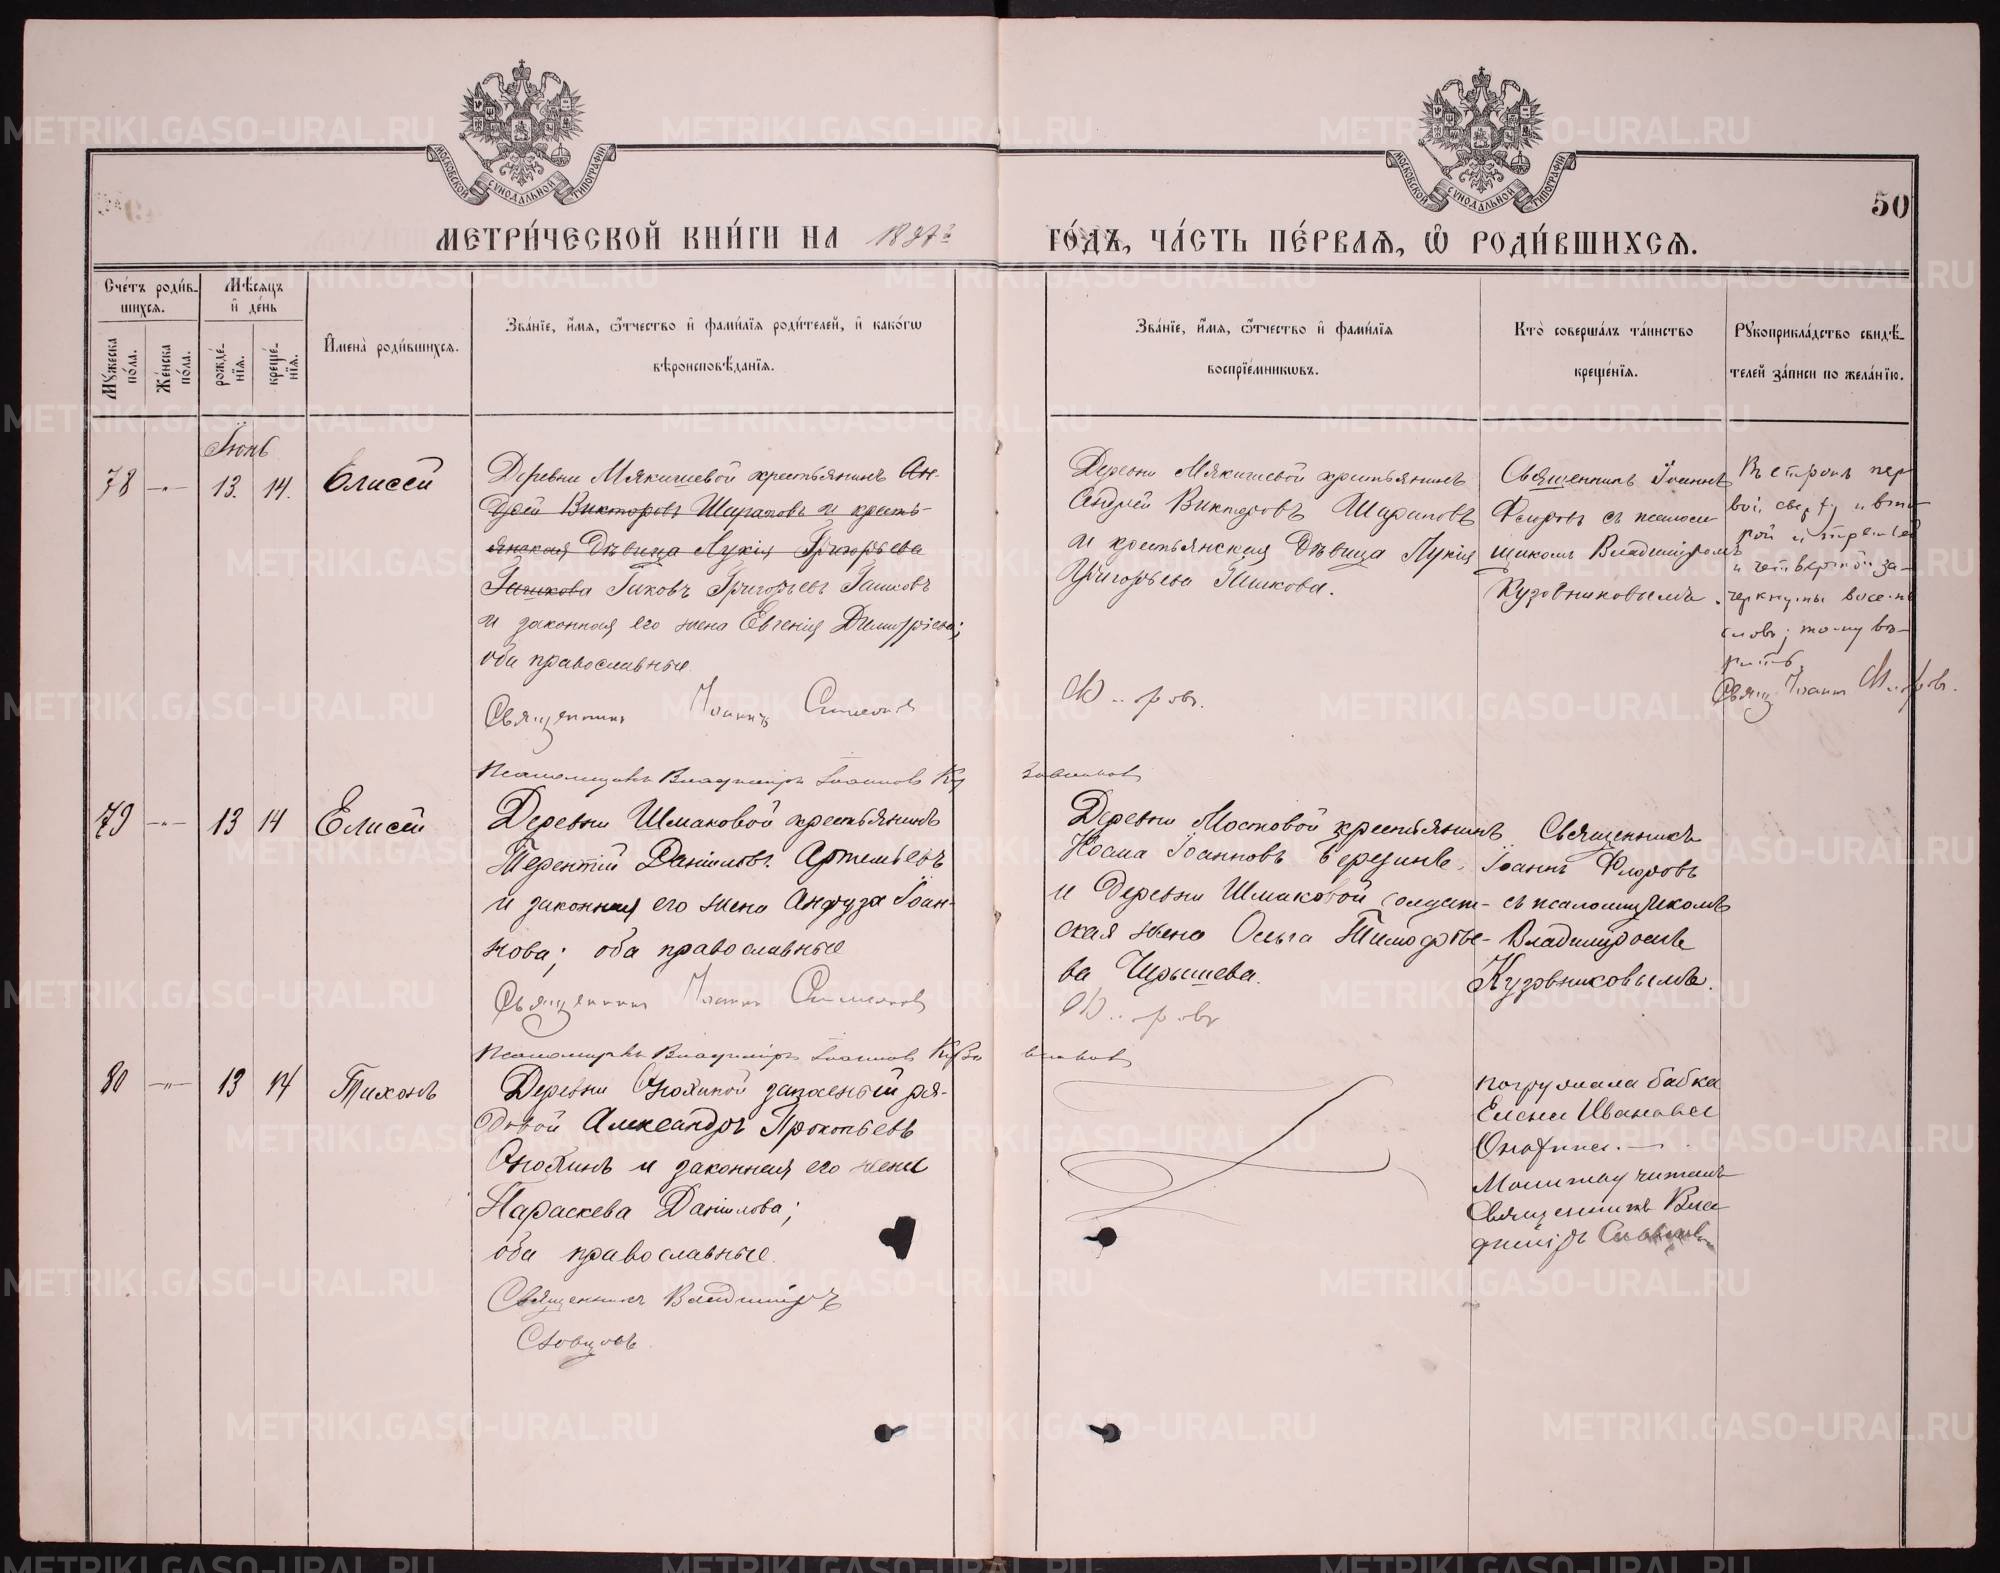 МОСКОВСКОЙ СУНОДАЛЬНОЙ ТИПОГРАФІИ
МОСКОВСКОЙ СУНОДАЛЬНОЙ ТИПОГРАФІИ
50
МЕТРИ́ЧЕСКОЙ КНИ́ГИ НА
ГО́ДЪ, ЧА́СТЬ ПЕ́РВАѦ, Ѿ РОДИ́ВШИХСѦ.
Сче́тъ роди́в-
шихсѧ.
Мꙋжеска по́ла.
Же́нска по́ла.
Мѣ́сѧцъ
и҆ де́нь
рожде́-
нїѧ.
креще́-
нїѧ.
И҆мена̀ роди́вшихсѧ.
Зва́нїе, и҆́мѧ, ѻ҆́тчество и҆ фами́лїѧ роди́телей, и҆ како́гѡ
вѣроисповѣ́данїѧ.
Зва́нїе, и҆́мѧ, ѻ҆́тчество и҆ фами́лїѧ
воспрїе́мникѡвъ.
Кто̀ соверша́лъ та́инство
креще́нїѧ.
Рꙋкоприкла́дство свидѣ́-
телей за́писи по жела́нїю.
Іюнь
78 -"- 13. 14. Елисей
Деревни Мякишевой крестьянинъ Ан-
дрей Викторовъ Шараповъ и кресть-
янская дѣвица Лукія Григорьева
Гашкова Іаковъ Григорьевъ Гашковъ
и законная его жена Евгенія Димитріева;
оба православные.
Священникъ Іоаннъ
Деревни Мякишевой крестьянинъ
Андрей Викторовъ Шараповъ
и крестьянская дѣвица Лукія
Григорьева Гашкова.
Священникъ Іоаннъ
Флоровъ съ псалом-
щикомъ Владиміромъ
Кузовниковымъ.
Въ строкѣ пер-
вой, сверху, и вто-
рой и третьей
и четвертой за-
черкнуты восемь
словъ; тому вѣ-
рить.
Свящ. Іоаннъ Флоровъ.
Псаломщикъ Владиміръ Іоанновъ Кузовниковъ
79 -"- 13 14 Елисей
Деревни Шмаковой крестьянинъ
Терентій Даніиловъ Артемьевъ
и законная его жена Анфуза Іоан-
нова; оба православные
Священникъ Іоаннъ
Деревни Мостовой крестьянинъ
Косма Іоанновъ Березинъ,
и деревни Шмаковой солдат-
ская жена Ольга Тимофѣе-
ва Чирышева.
Священникъ
Іоаннъ Флоровъ
съ псаломщикомъ
Владиміромъ
Кузовниковымъ.
Псаломщикъ Владиміръ Іоанновъ Кузовниковъ
80 -"- 13 14 Тихонъ
Деревни Онохиной запасный ря-
довой Александръ Прокопьевъ
Онохинъ и законная его жена
Параскева Даніилова;
оба православные.
Священникъ Владиміръ
Словцовъ
Погружала бабка
Елена Иванова
Онохина.
Молитву читалъ
Священникъ Вла-
диміръ Словцовъ
METRIKI.GASO-URAL.RU